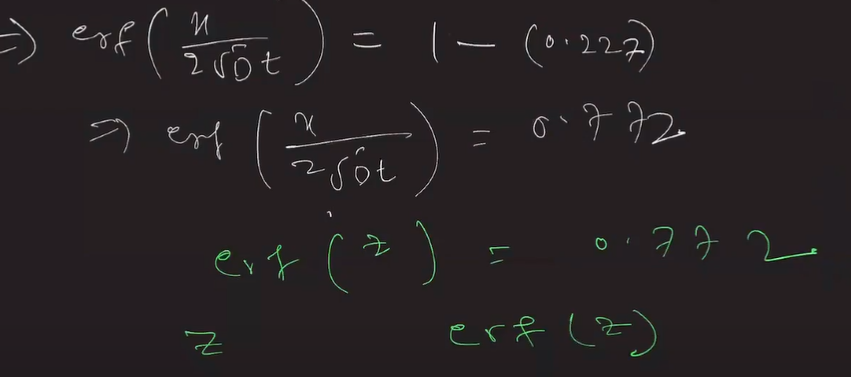 => erf ( x / 2√Dt ) = 1 - (0.227)
=> erf ( x / 2√Dt ) = 0.772
erf ( z ) = 0.772
z erf (z)